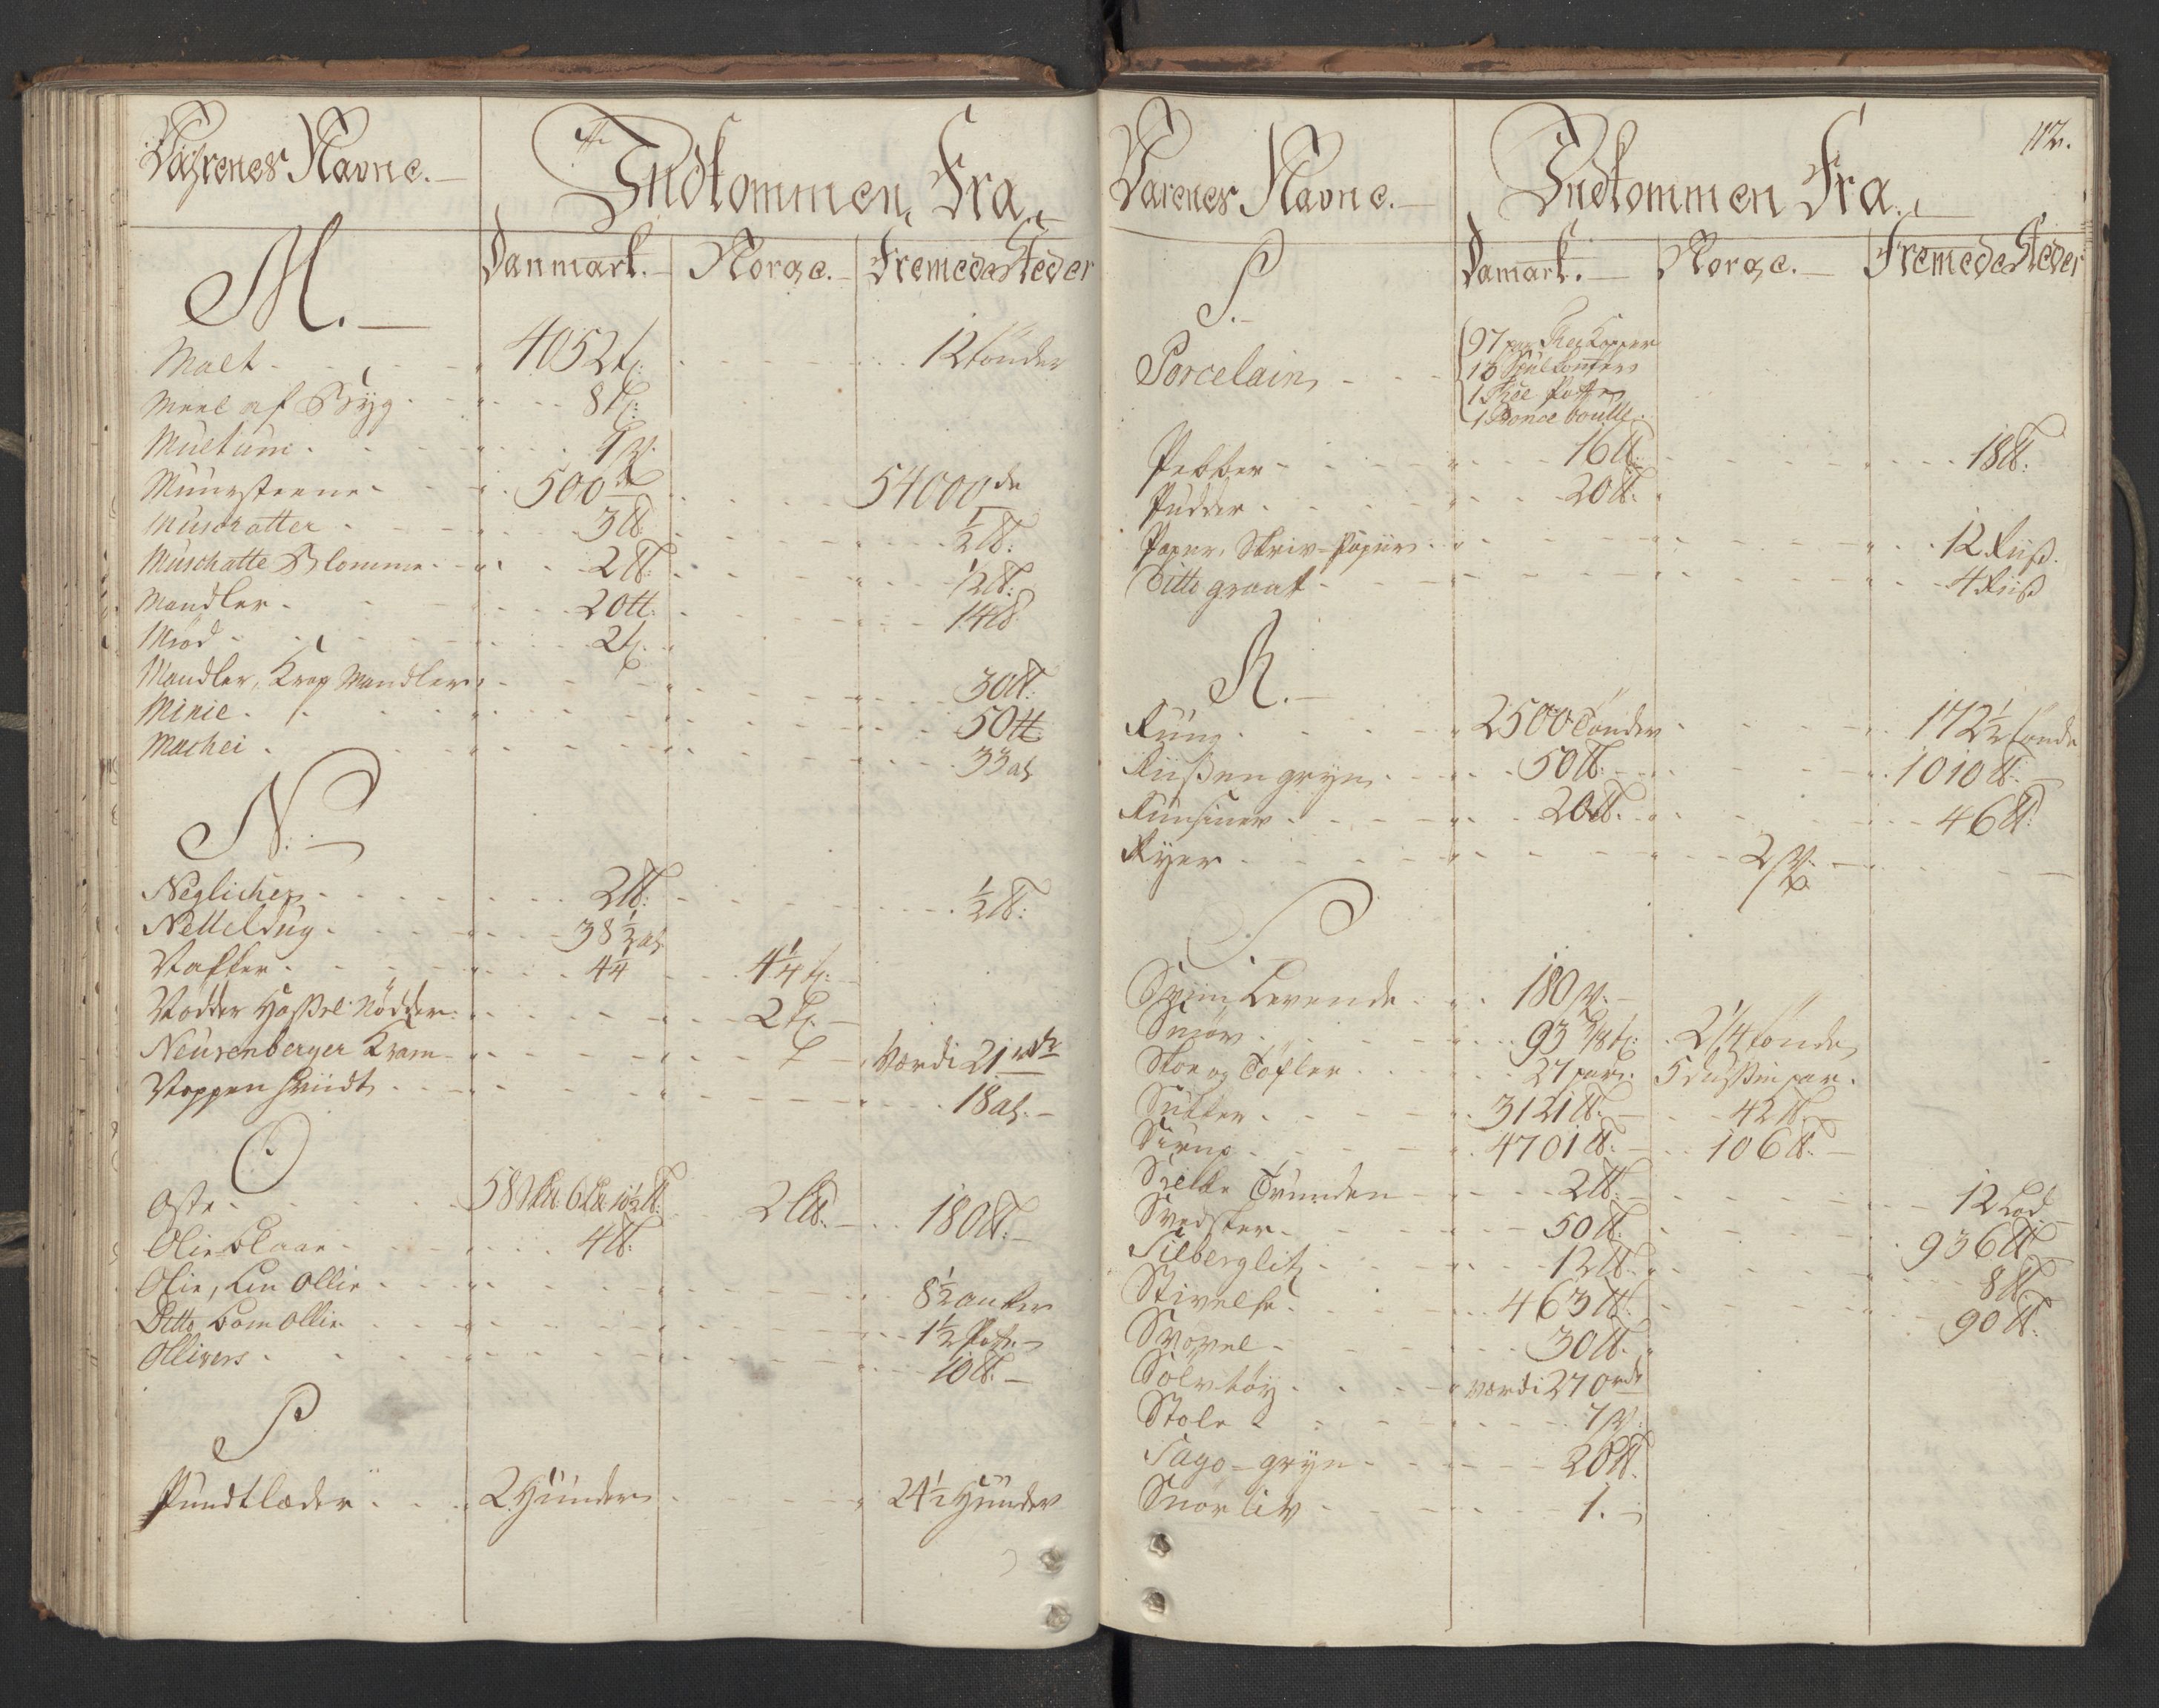 Vahrenes Navne.
Indkommen Fra
Danmark. Norge. Fremede Steder
M.
Malt 405 2 t: 12 tønder
Meel af Byg 8 t:
Multum 1 st.
Muursteene 500 st 54000 de
Muschatter 3 ℔: ½ ℔:
Muschatte Blomme 2 ℔: ½ ℔:
Mandler 20 ℔: 14 ℔
Miød 2 t:
Mandler, Krag Mandler 30 ℔:
Minie 50 ℔
Machei 33 al
N.
Neglicher 2 ℔: ½ ℔:
Netteldug 38½ al
44 4¼ t:
Nødder Hassel Nødder 2 t:
Neurenberger Kram Værdi 21 rdr
Noppen 18 al.
O
Oste 2 L℔. 180 ℔.
Olie blaae 4 ℔:
Olie, Lin Ollie 8½ anker
Ditto bom Ollie 1½ Pot
Ollivers 10 ℔.
P
Pundtlæder 2 Hüünder 24½ Hüünder
112.
Varenes Navne.
Indkommen Fra.
Damark. Norge. Fremede Steder
P.
Porcelain 97 par Thee Kopper
1 Thee Potte
1 Ponce boulle
Pebber 16 ℔: 18 ℔:
Pudder 20 ℔:
Papiir, Skriv-Papiir 12 Riiß.
Ditto graat 4 Riiß
R.
Rüug 2500 Tønder 172½ tønde
Riißengryn 50 ℔. 1010 ℔.
Ruusiner 20 ℔. 46 ℔.
Ryer 2 st.
S
Sviin Levende 180 st.
Smør 93 2¼ tønde
Skoe og Tøfler 27 par. 5 dussin par.
Sukker 3121 ℔. 42 ℔.
Sirup 4701 ℔. 106 ℔.
Sielke 2 ℔. 12 Lod
Svedsker 50 ℔. 936 ℔.
Silberglit 12 ℔. 8 ℔.
Stivelse 463 ℔. 90 ℔.
Svovel 30 ℔.
Sølvtøy værdi 270 rdr
Stole 7 st.
Sago-gryn 20 ℔.
Snørliv 1.